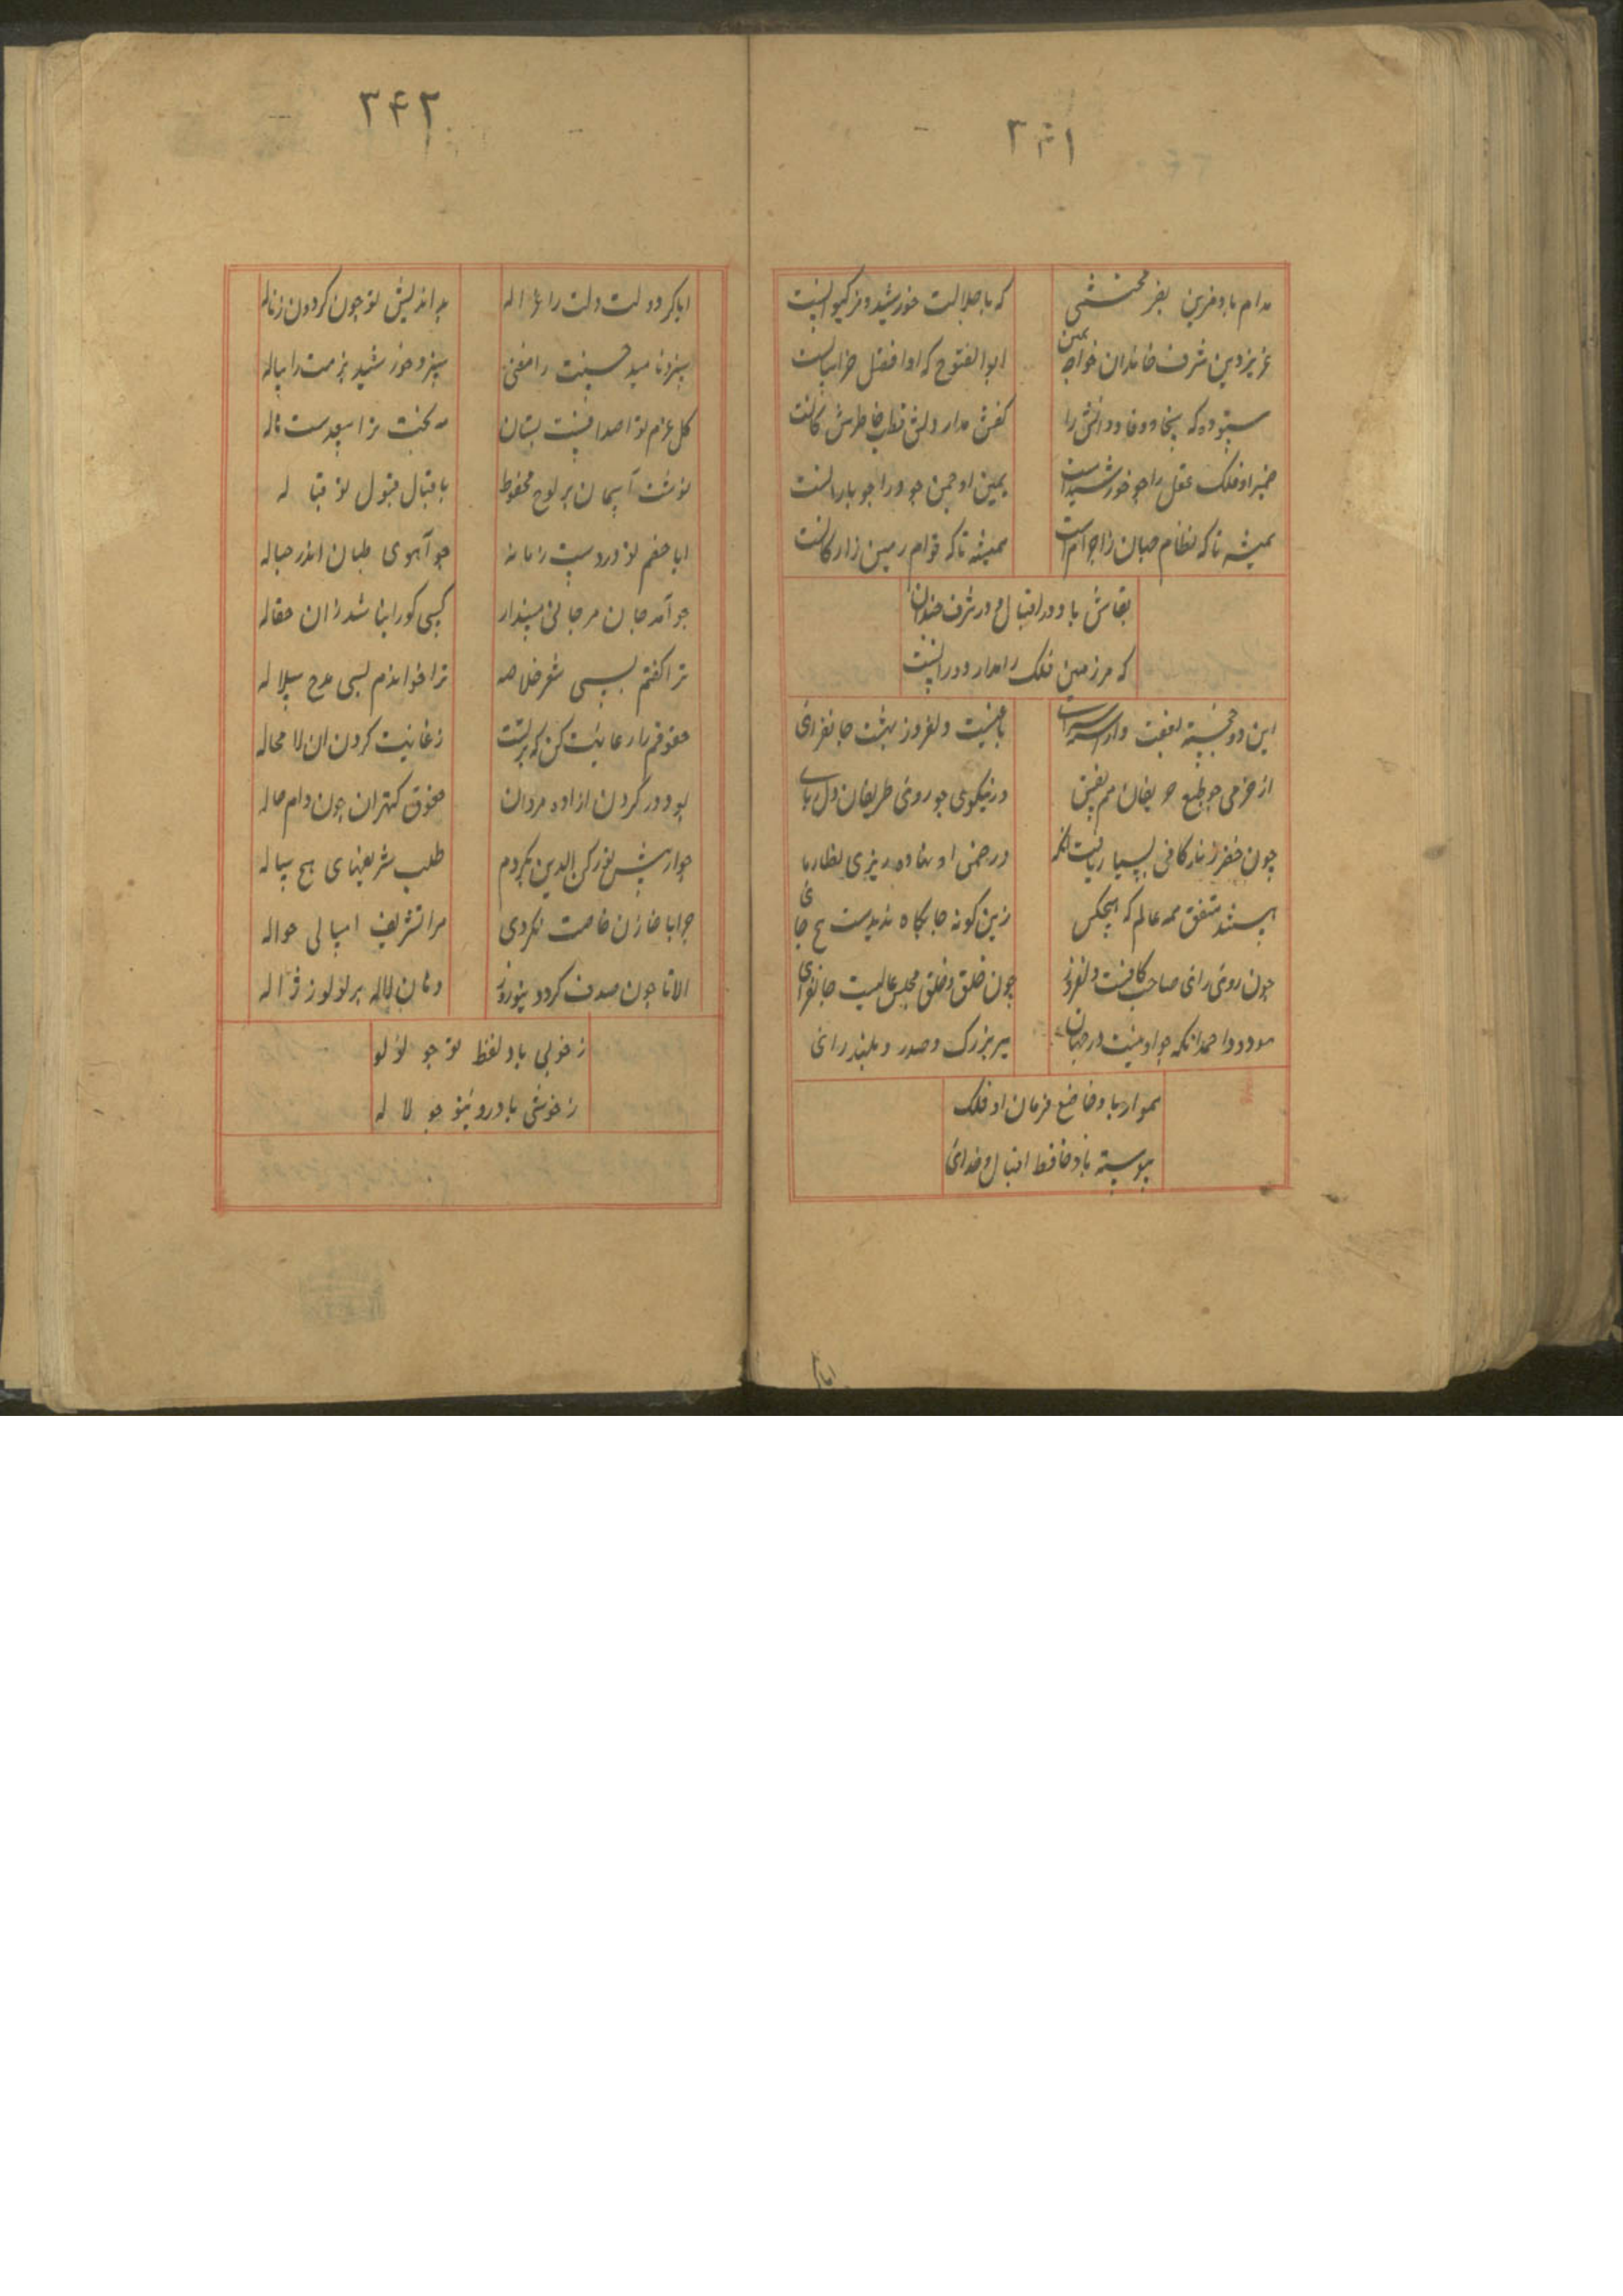 ۳۴۱
مدام بادو قرین بفر محتشمی
که با جلالت خورشید و فر کیوانست
عزیز دین شرف خاندان خواجه یمین
ابوالفتوح که او افضل خراسانست
ستوده که سخا و وفا و دانش را
کفش مدار و دلش قطب و خاطرش کانست
ضمیر او فلک عقل را چو خورشیدست
یمین او چمن جود را چو بارانست
همیشه تا که نظام جهان ز اجرامست
همیشه تا که قوام زمین ز ارکانست
بقاش باد و در اقبال و در شرف چندان
که مر زمین فلک را مدار و دورانست
این دو خجسته بقعت و آراسته سرای
باغیست دلفروز بهشت جانفزای
از خرمی چو طبع حریفان هم نفس
در نیکویی چو روی ظریفان دل ربای
چون خضر زندگانی بسیار یافت آنکه
در صحن او نهاده بریزی نظاره پای
هستند متفق همه عالم که هیچکس
زین گونه جایگاه ندیدست هیچ جای
چون روی رای صاحب کافیست دلفروز
چون خلق و خلق مجلس عالیست جانفزای
مودود احمد آنکه چو او نیست در جهان
میر بزرگ و صدر و بلند رای
هموار باد خاضع فرمان او فلک
پیوسته باد حافظ اقبال او خدای
ایا کر
۳۴۲
ایا کر دولت دلت را
بد اندیش تو چون کردون زناله
سزد ناهید حسنت را مغنی
سزد خورشید بزمت را پیاله
کل عزم تو اصدافیست بستان
مه بخت ترا سعدست هاله
نوشت آسمان بر لوح محفوظ
باقبال قبول تو قباله
ایا خصم تو در دست زمانه
چو آهوی طپان اندر حباله
چو آمد جان مرجانی میندار
کسی کورا نباشد زان حقاله
ترا گفتم بسی شعر خلاصه
ترا خواندم بسی مدح سلاله
حقوقم را رعایت کن که بر تست
رعایت کردن آن لامحاله
بود در کردن آزاده مردان
حقوق کهتران چون دام حاله
چو از پیش تو رکن الدین نکردم
طلب تشریفهای هیچ ساله
چرا با خازن خاصت نکردی
مرا تشریف امسالی حواله
الا تا چون صدف کردد بنوروز
دهان لاله پر لولو ز ژاله
ز خوبی باد لفظ تو چو لولو
ز خوشی باد روی تو چو لاله